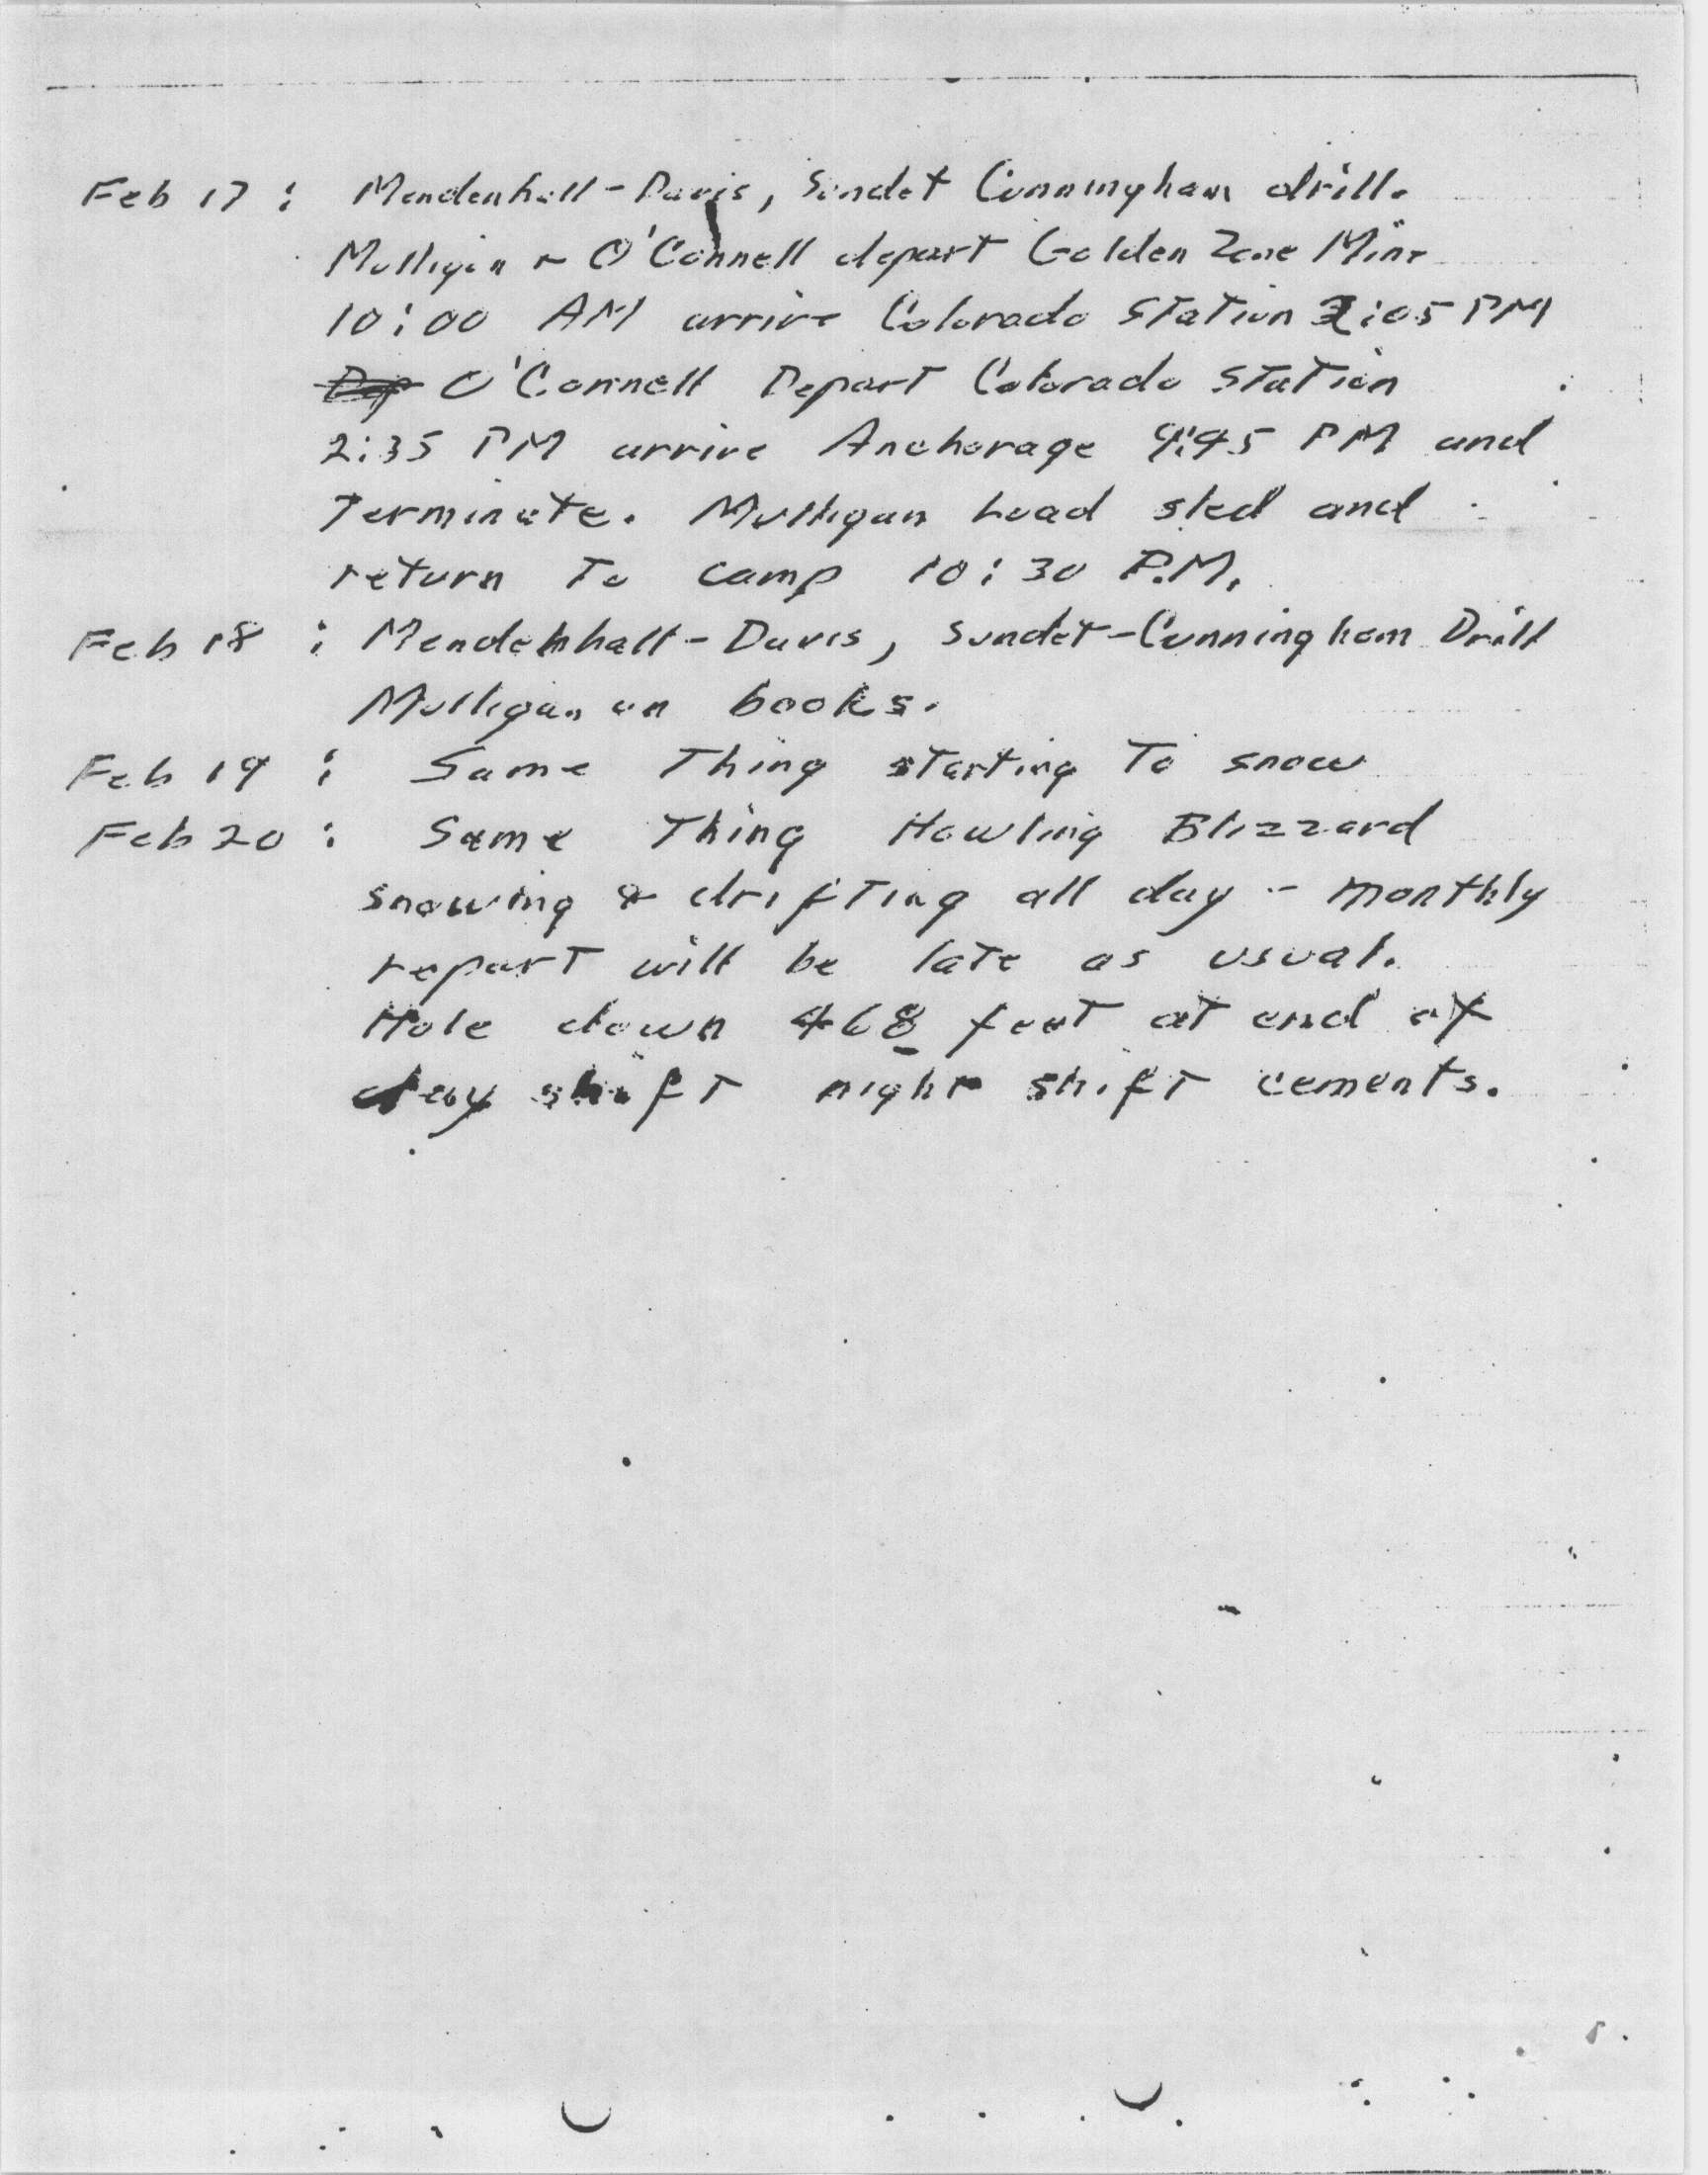 Feb 17 : Mendenhall - Davis, Sundet Cunningham drill.
Mulligan & O'Connell depart Golden Zone Mine
10:00 AM arrive Colorado Station 2:05 PM
O'Connell Depart Colorado Station
2:35 PM arrive Anchorage 9:45 PM and
Terminate. Mulligan Load sled and
return To camp 10:30 P.M.
Feb 18 : Mendenhall - Davis, Sundet - Cunningham Drill
Mulligan on books.
Feb 19 : Same Thing starting To snow
Feb 20 : Same Thing Howling Blizzard
snowing & drifting all day - monthly
report will be late as usual.
Hole down 468 feet at end of
day shift night shift cements.